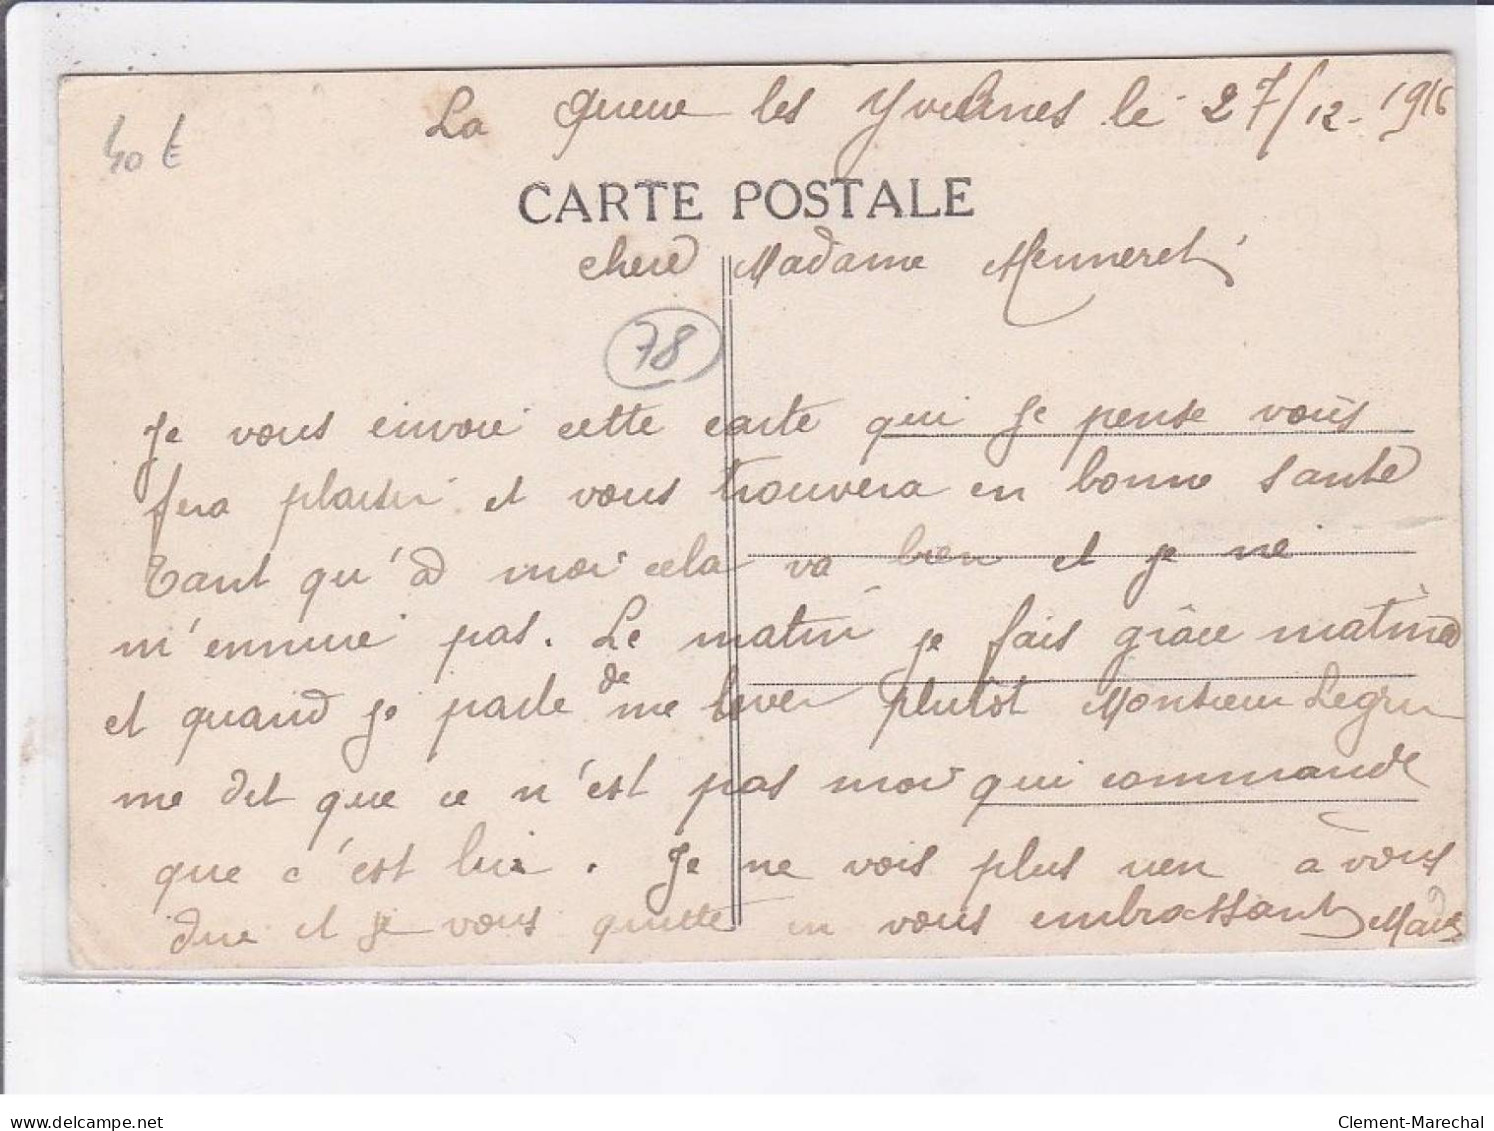 La Queue les Yvelines le 27/12-1916
40 €
CARTE POSTALE
chere Madame Menneret
78
Je vous envoie cette carte qui je pense vous
fera plaisir et vous trouvera en bonne santé
Tant qu'à moi cela va bien et je ne
m'ennuie pas. Le matin je fais grâce matiné
et quand je parle de me lever plutôt Monsieur
me dit que ce n'est pas moi qui commande
que c'est lui. Je ne vois plus rien a vous
dire et je vous quitte en vous embrassant
delcampe.net
Clement-Marechal